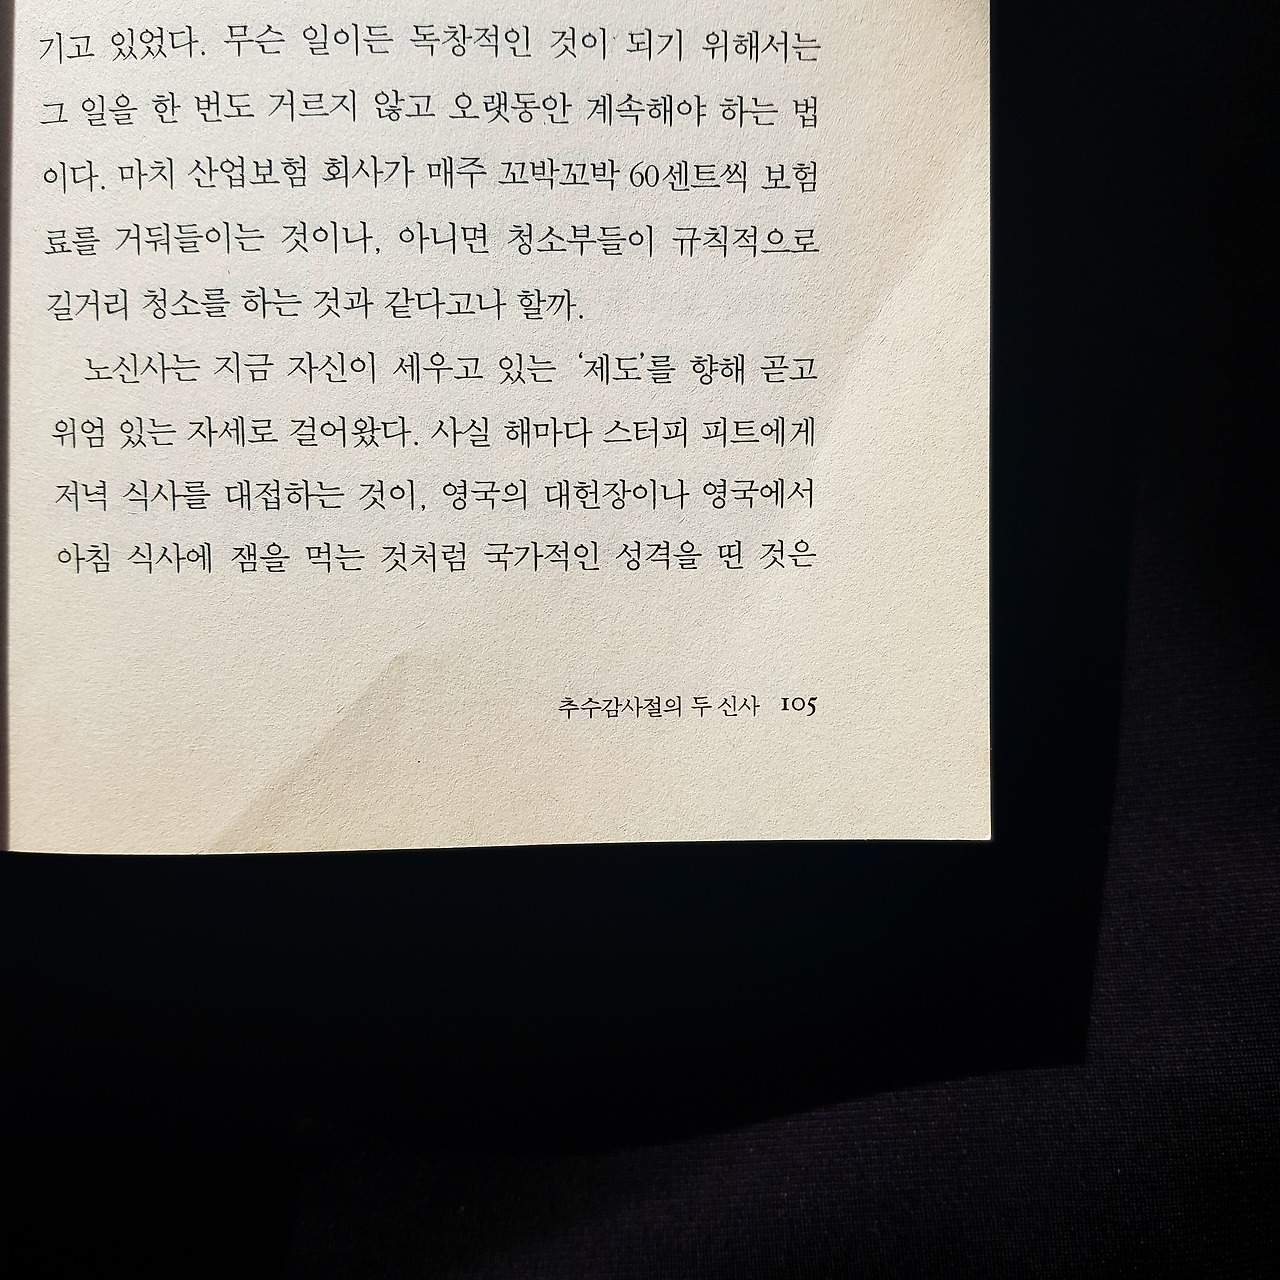 기고 있었다. 무슨 일이든 독창적인 것이 되기 위해서는
그 일을 한 번도 거르지 않고 오랫동안 계속해야 하는 법
이다. 마치 산업보험 회사가 매주 꼬박꼬박 60센트씩 보험
료를 거둬들이는 것이나, 아니면 청소부들이 규칙적으로
길거리 청소를 하는 것과 같다고나 할까.
노신사는 지금 자신이 세우고 있는 ‘제도’를 향해 곧고
위엄 있는 자세로 걸어왔다. 사실 해마다 스터피 피트에게
저녁 식사를 대접하는 것이, 영국의 대헌장이나 영국에서
아침 식사에 잼을 먹는 것처럼 국가적인 성격을 띤 것은
추수감사절의 두 신사 105